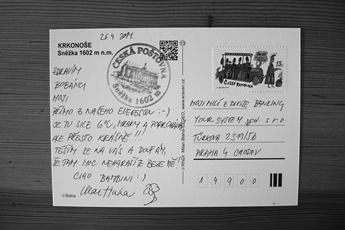 26.4.2011
KRKONOŠE
Sněžka 1602 m n.m.
ČESKÁ POŠTOVNA
Sněžka 1602 m
ZDRAVÍM
MOJI
PÍŠMO Z NAŠEHO EVERESTU :-)
JE TU SICE 6°C, MRAKY A
ALE PŘESTO KRÁSNĚ !!!
TĚŠÍM SE NA VÁS A DOUFÁM,
ŽE TAM MOC NEHARAŠÍTE BEZE MĚ!
CIAO BAMBINI :)
ČESKÁ REPUBLIKA
MOJI MILÍ Z DEVIZE BANKING
YOUR SYSTEM spol. s r.o.
TÜRKOVA 2319/5b
PRAHA 4 CHODOV
14900